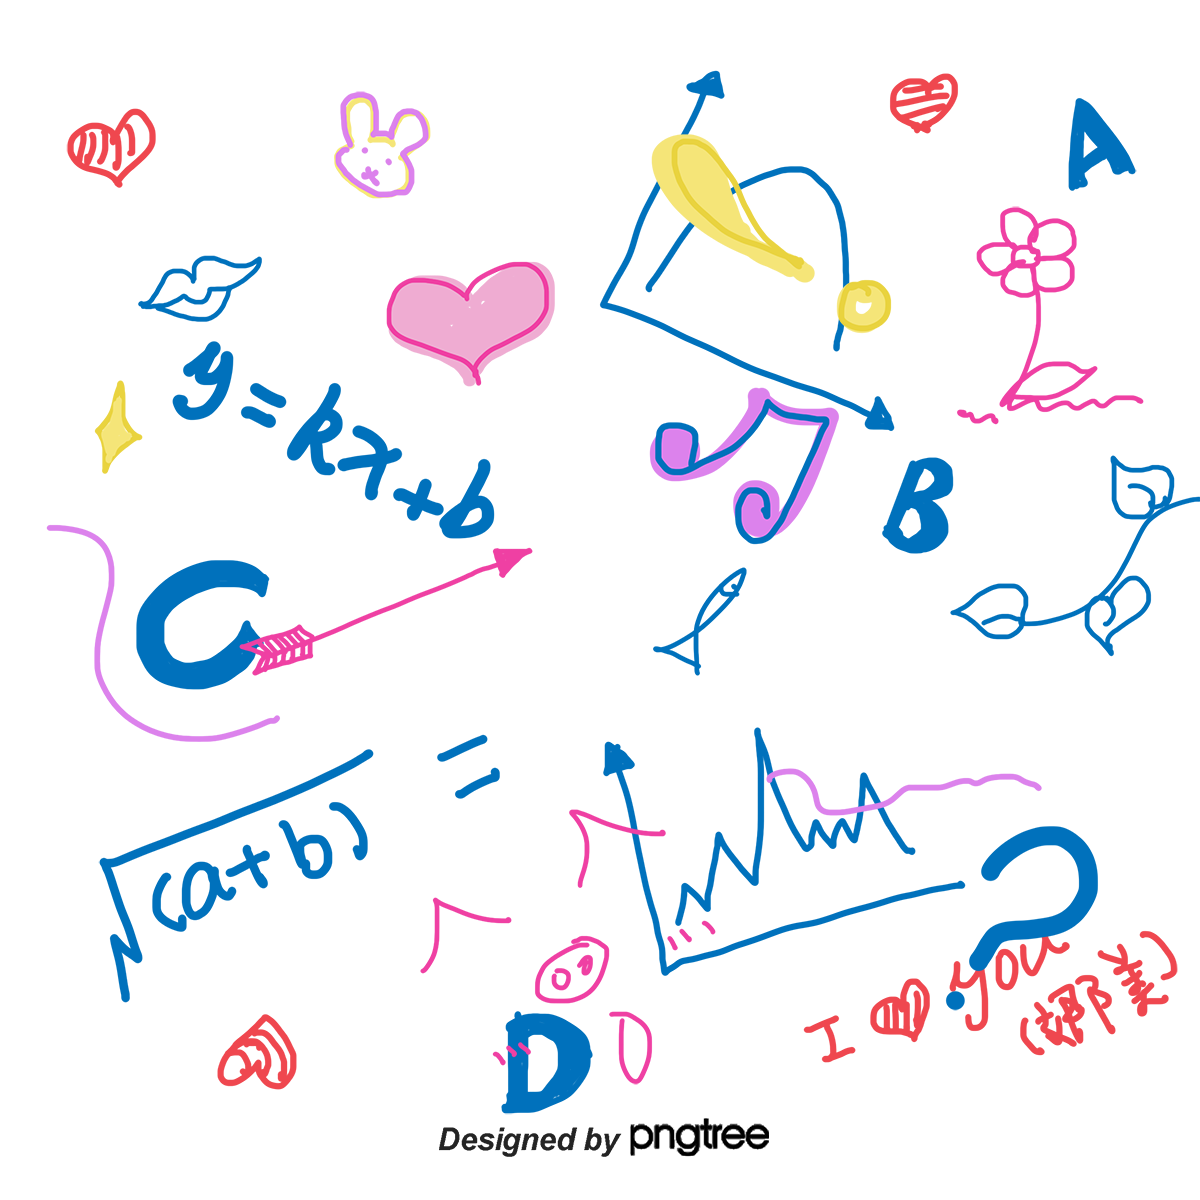 A
y=kx+b
B
C
√(a+b) =
?
I ❤ you
(娜美)
D
Designed by pngtree